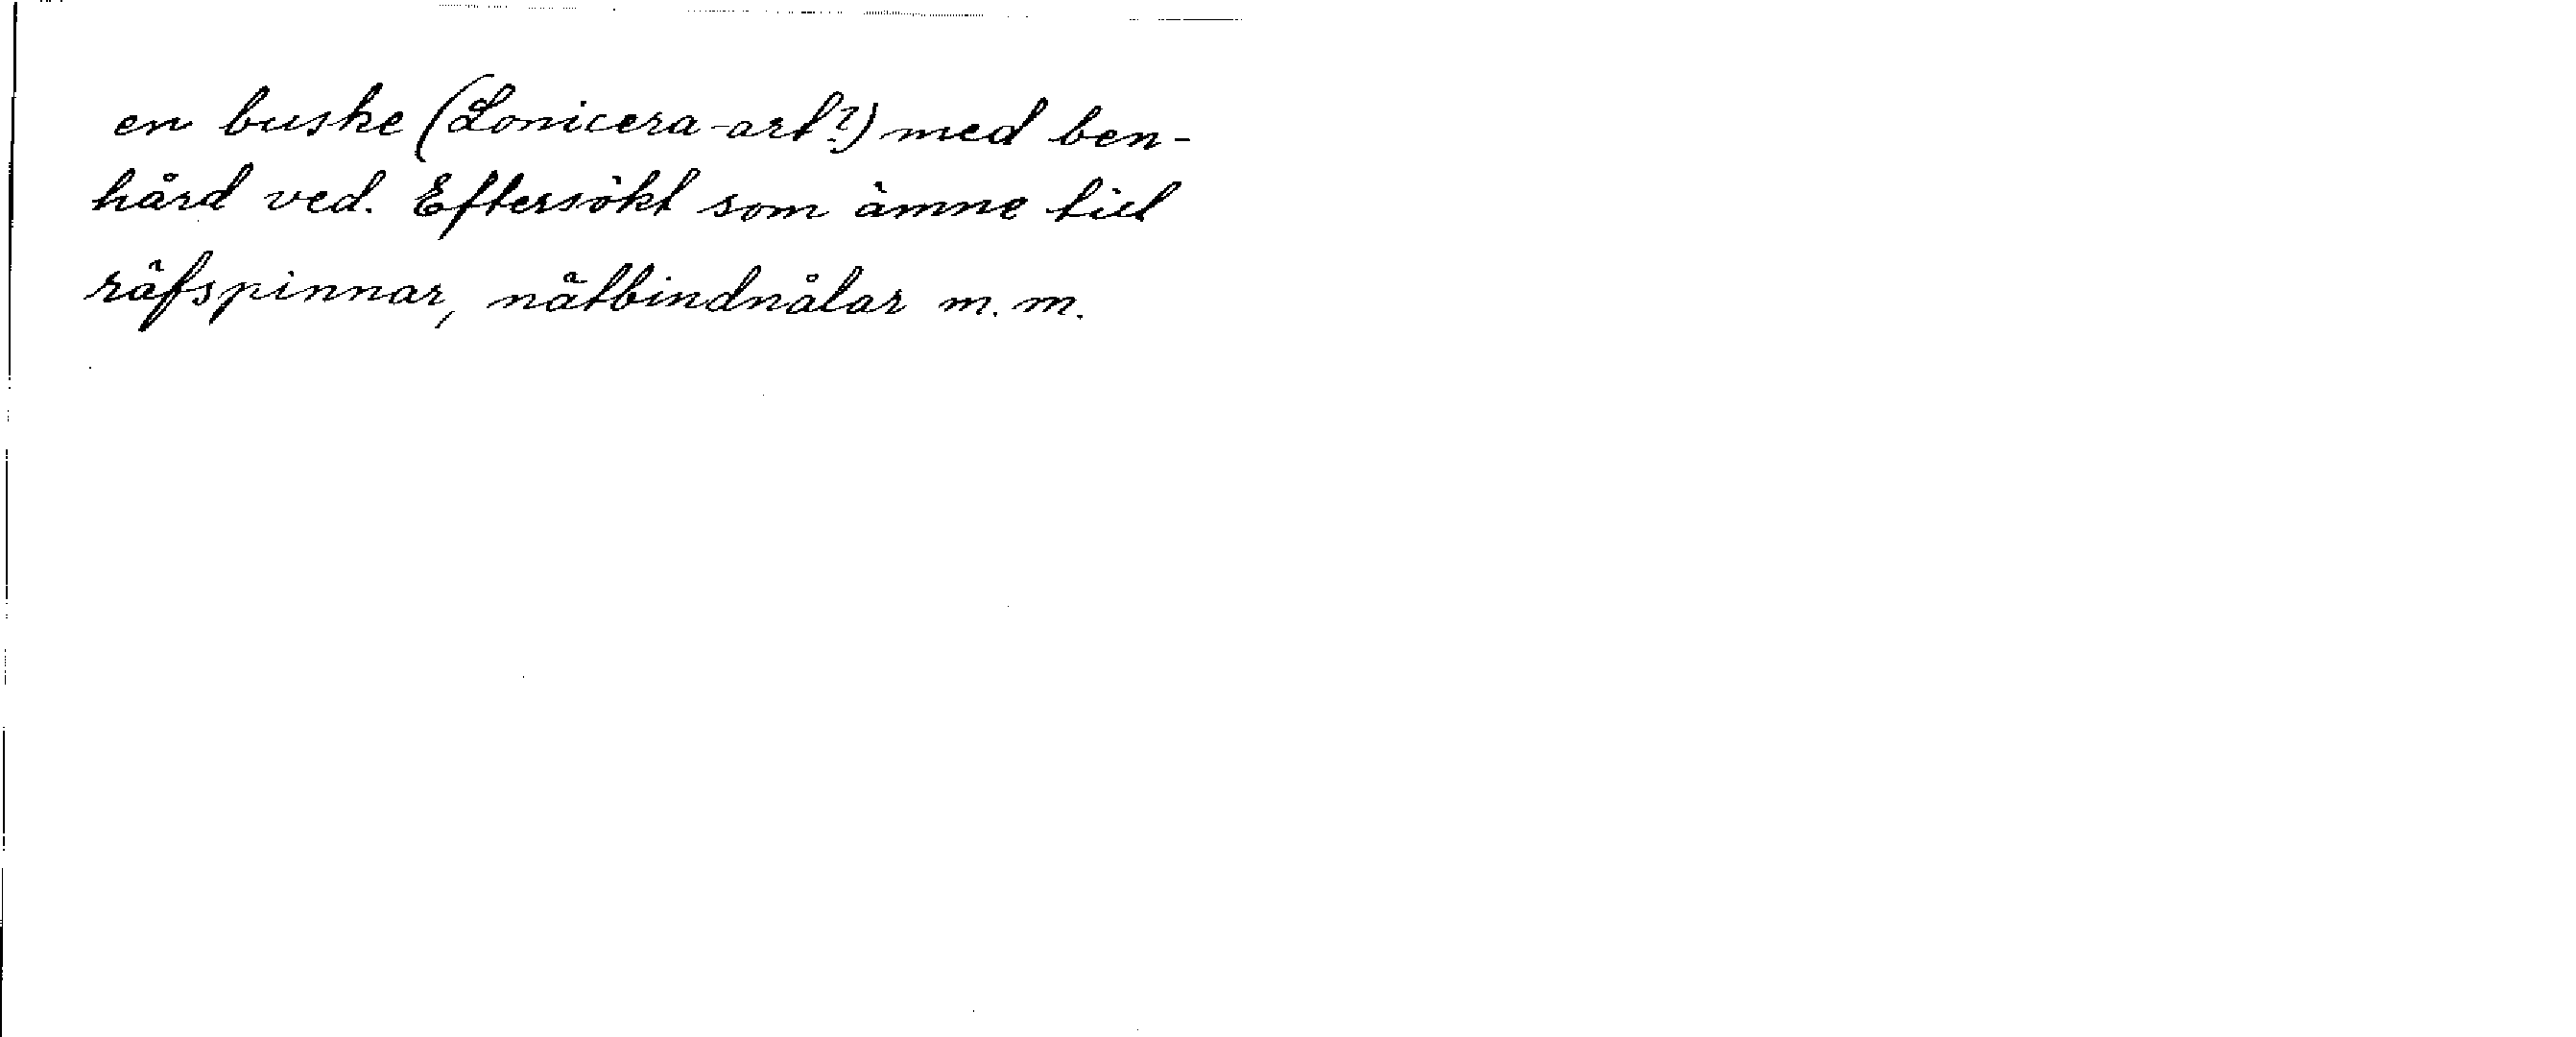 en buske (Lonicera-art?) med ben-
hård ved. Eftersökt som ämne till
räfspinnar, nätbindnålar m. m.